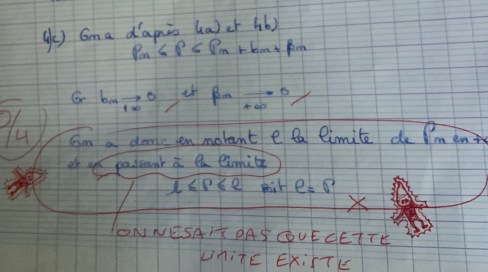 4)c) On a d'après 4a) et 4b)
Pn ≤ P ≤ Pn + bn + βn
Or bn → 0 +∞ et βn → 0 +∞
/4
On a donc en notant l la limite de Pn en +
et en passant à la limite
l ≤ P ≤ l soit l = P
ON NE SAIT PAS QUE CETTE
LIMITE EXISTE